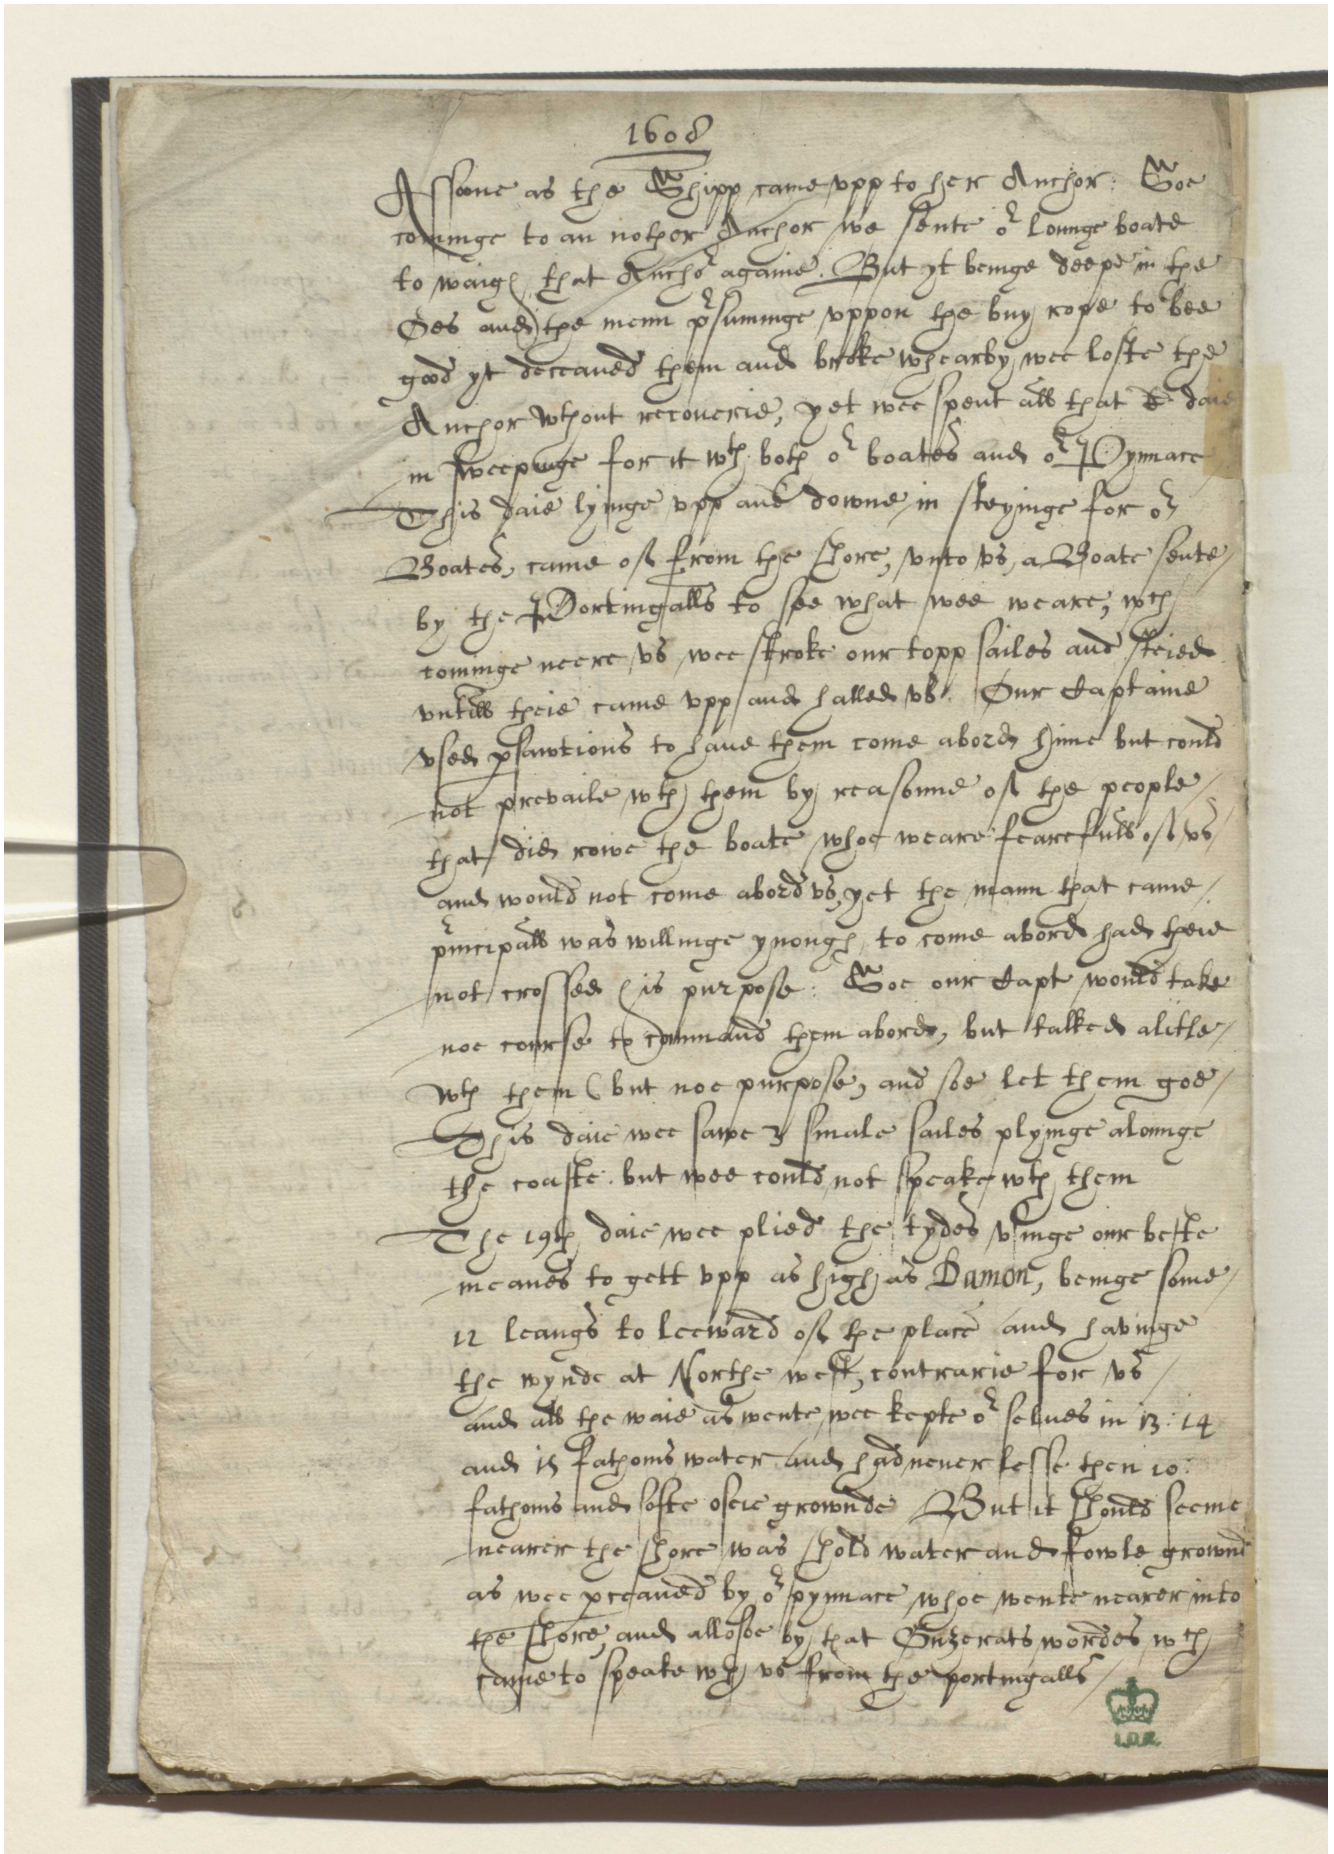 1608
Assoone as the Shipp came vpp to her Anchor: Soe
cominge to an nother Anchor we sente or lounge boate
to waigh that Anchor againe. But yt beinge deepe in the
Oes and the menn prsuminge vppon the buy rope to bee
good yt deceaued them and broke whearby wee loste the
Anchor wthout recouerie, yet wee spent all that daie
in sweepinge for it wth both or boates and or Pynnace
This daie lyinge vpp and downe in steyinge for or
Boates, came of from the shore, vnto vs, a Boate sente
by the Portingalls to see what wee weare, wch
cominge neere vs wee stroke our topp sailes and steied
vntill theie came vpp and halled vs. Our Captaine
vsed pswations to haue them come abord hime but could
not prevaile wth them by reasonne of the people
that did rowe the boate whoe weare fearefull of vs
and would not come abord vs, yet the mann that came
prncipall was willinge ynough to come abord had theie
not crossed his purpose: Soe our Capt would take
noe course to command them abord, but talked alitle
wth them but noe purpose, and soe let them goe
This daie wee sawe 3 smale sailes plyinge alounge
the coaste. but wee could not speake wth them
The 19th daie wee plied the tydes vsinge our beste
meanes to gett vpp as high as Damon, beinge some
12 leaugs to leeward of the place and havinge
the wynde at Northe west, contrarie for vs
and all the waie as wente wee kepte or selues in 13: 14
and 15 fathoms water and had neuer lesse then 10:
fathoms and softe osie grownde But it should seeme
nearer the shore was shold water and fowle grownd
as wee pceaued by or pynnace whoe wente nearer into
the shore, and allsoe by that Guzerats wordes wch
came to speake wth vs from the portingalls
I.O.R.